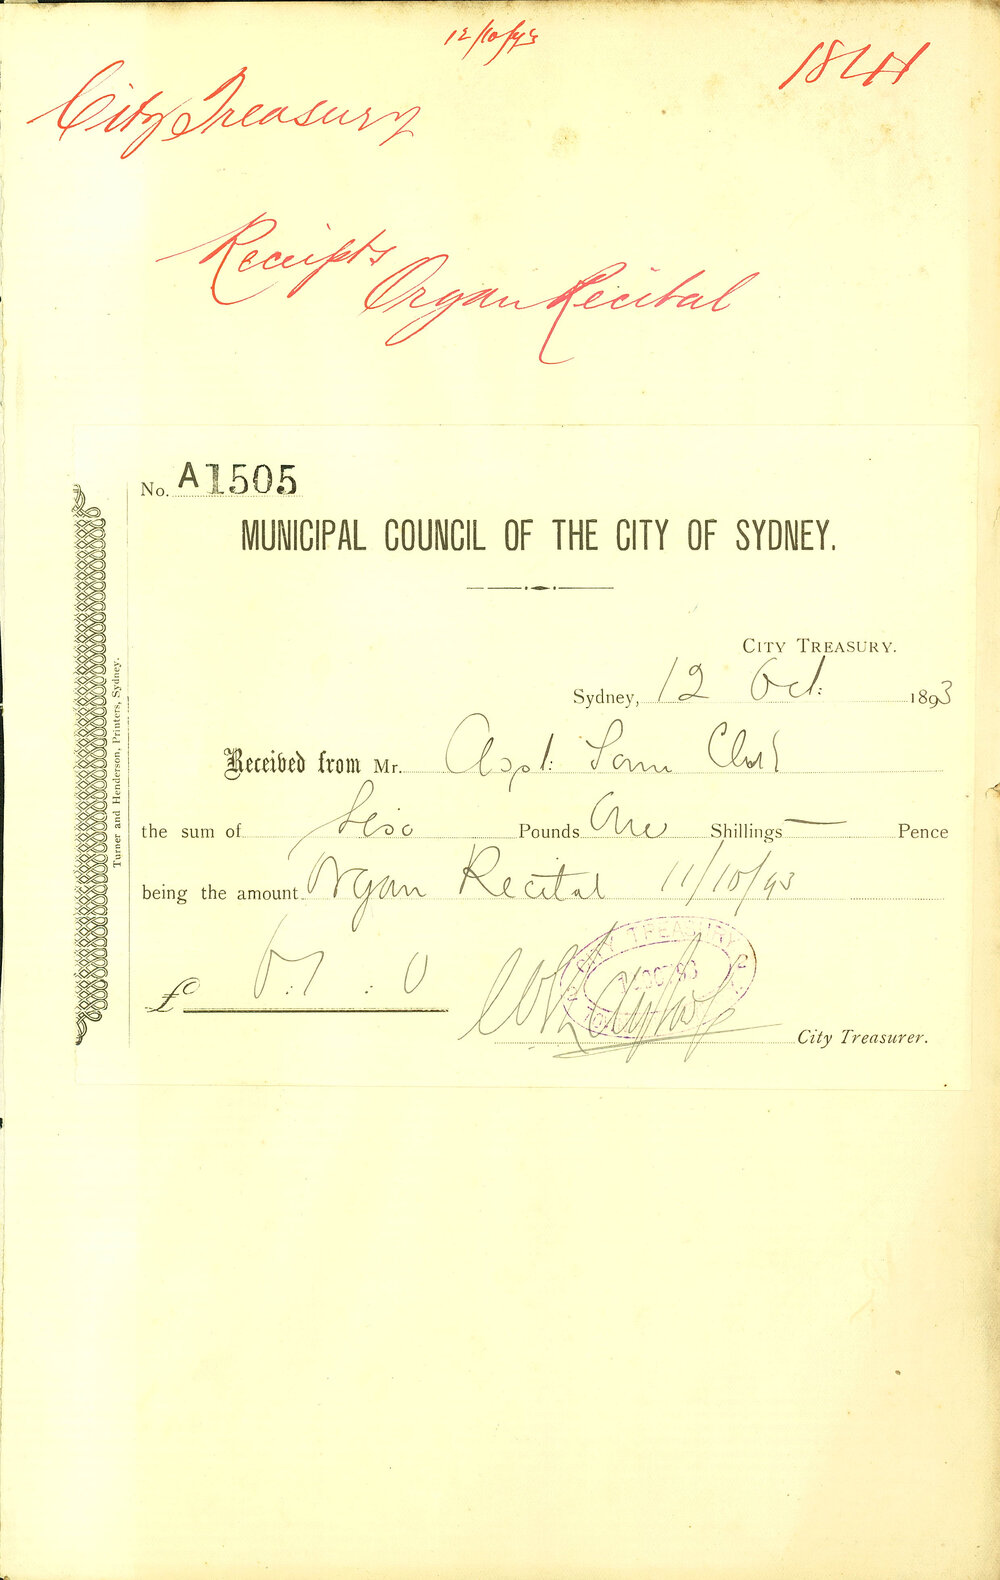 12/10/93
1841
City Treasury
Receipts
Organ Recital
No. A1505
MUNICIPAL COUNCIL OF THE CITY OF SYDNEY.
CITY TREASURY.
Sydney, 12 Oct: 1893
Received from Mr. Asst: Town Clerk
the sum of Six Pounds One Shillings — Pence
being the amount Organ Recital 11/10/93
£ 6 : 1 : 0
CITY TREASURY
OCT 93
City Treasurer.
Turner and Henderson, Printers, Sydney.